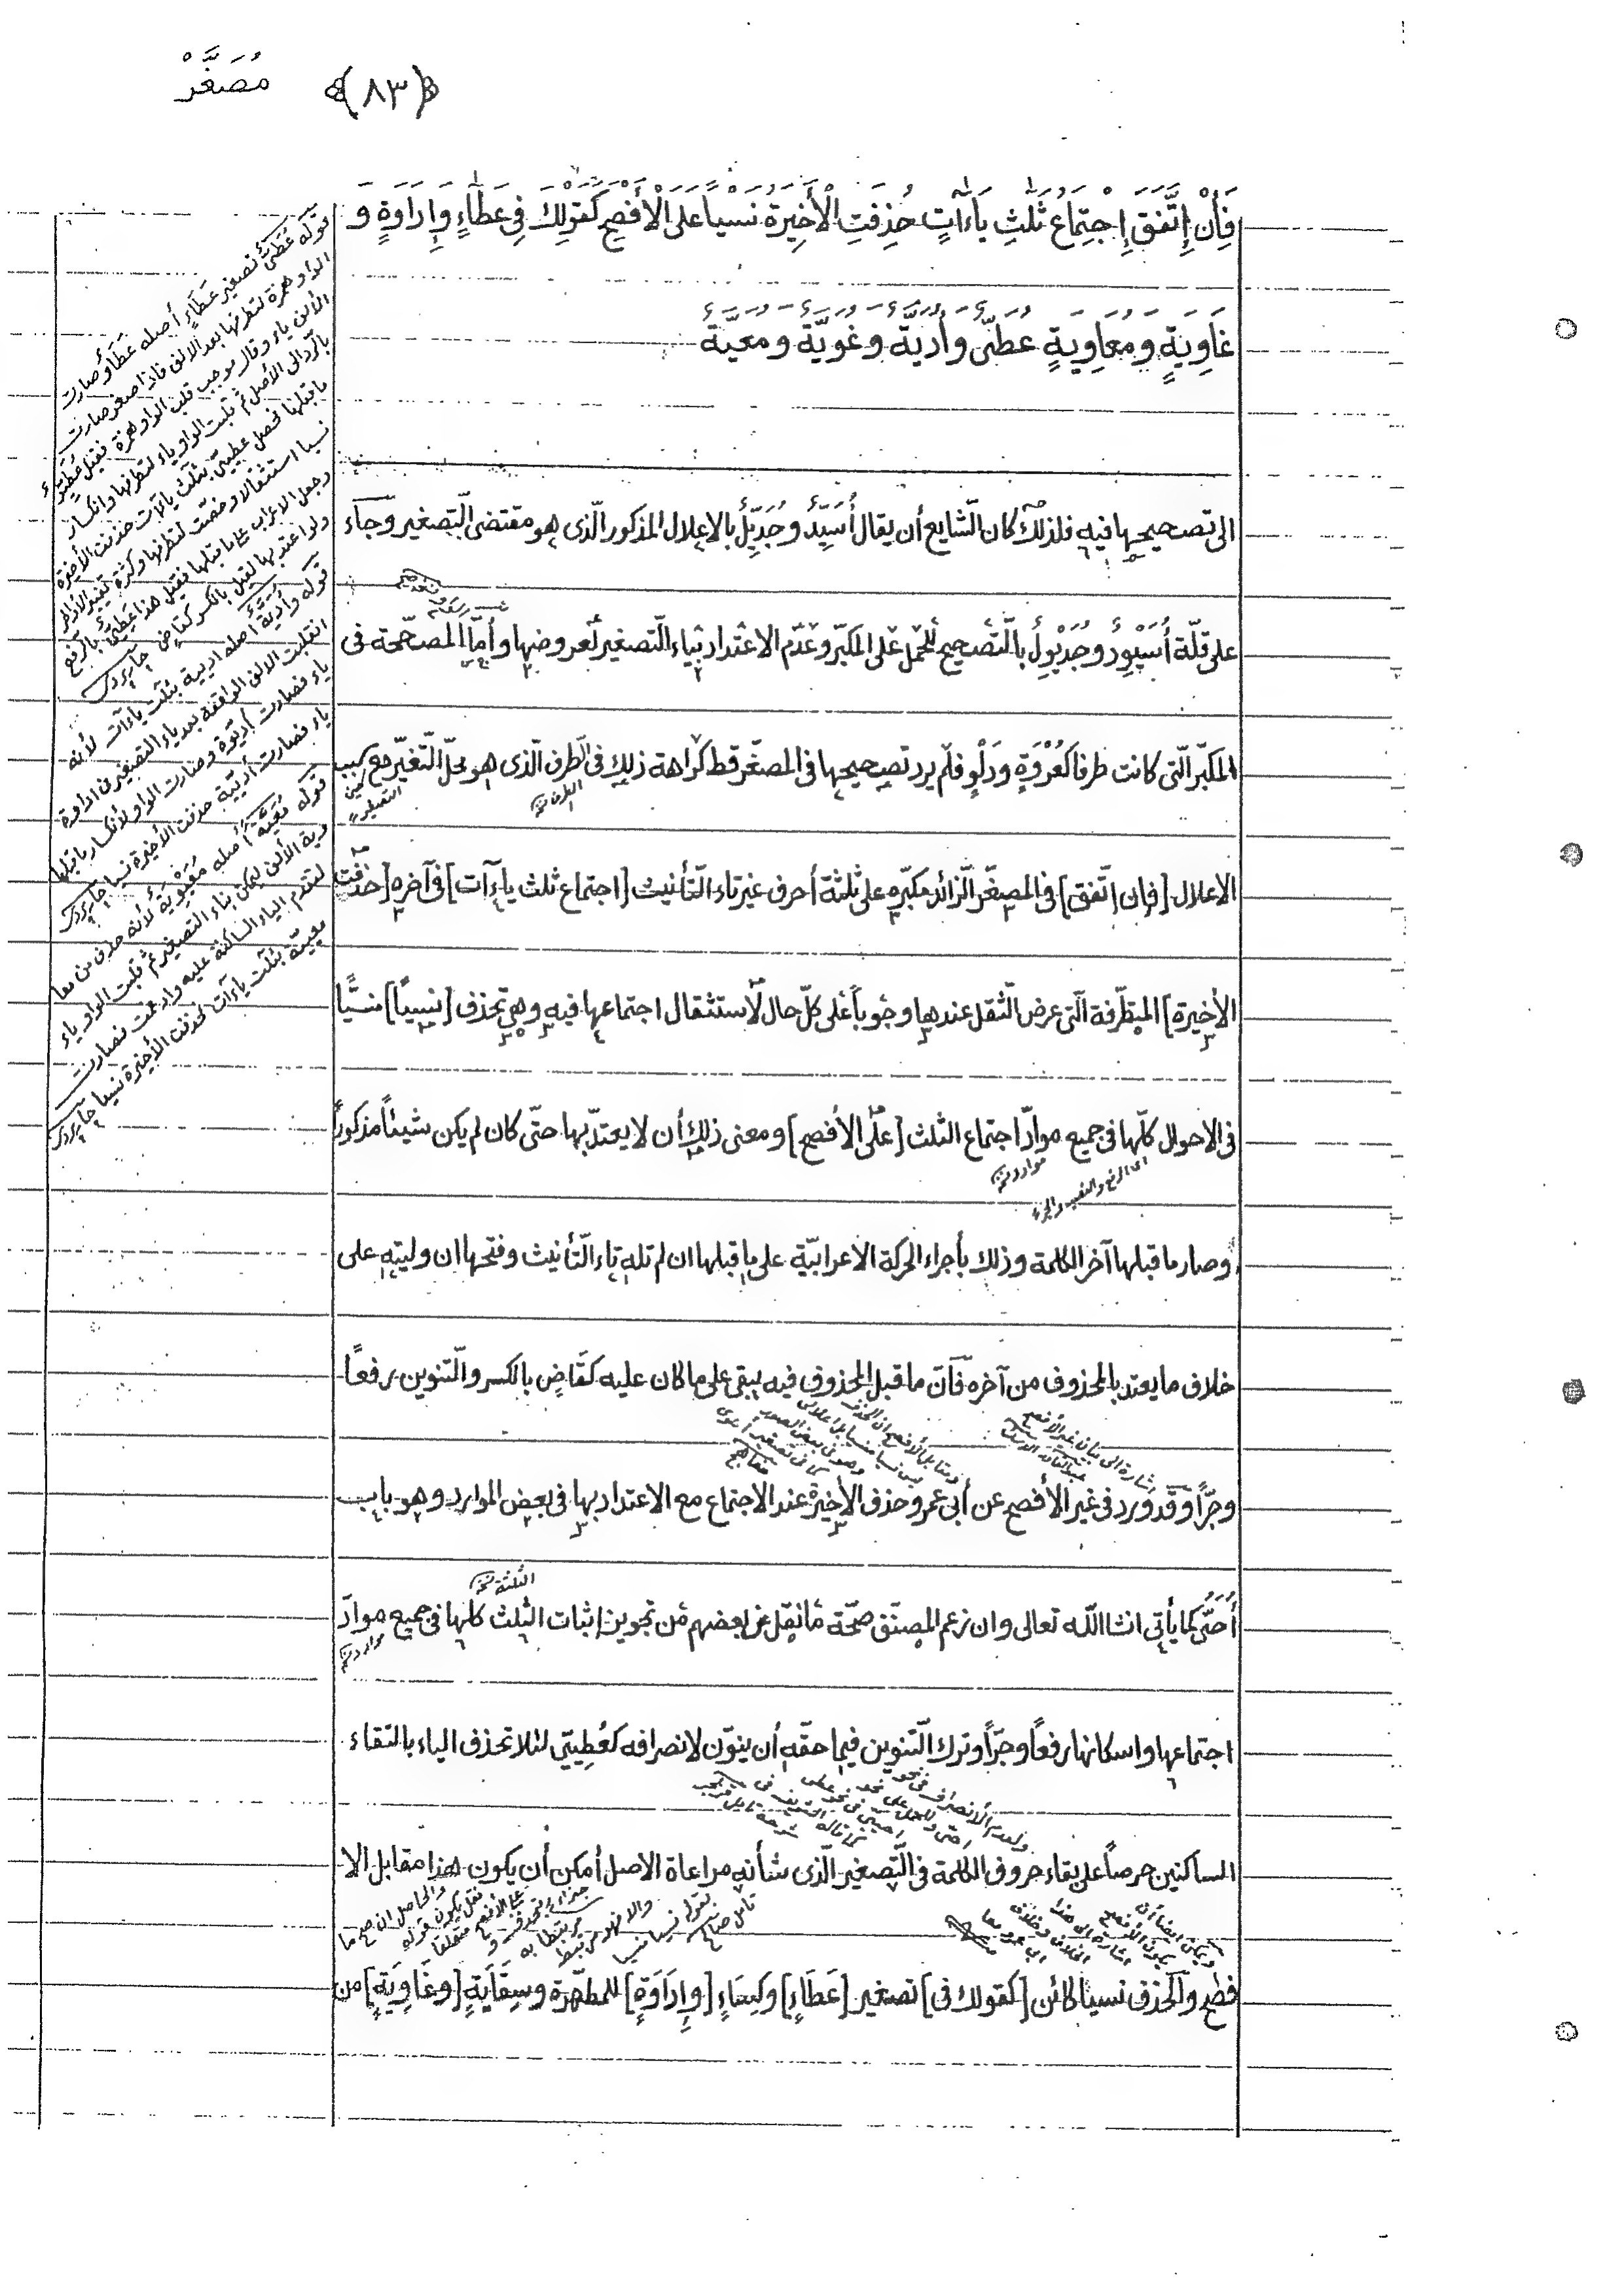 مُصَغَّرْ
﴿٨٣﴾
فَأِنْ إِتَّفَقَ إِجْتِمَاعُ ثَلٰثِ يَاءَاٰتٍ حُذِفَتِ الْأَخِيرَةُ نَسْياً عَلَى الْأَفْصَحِ كَقَوْلِكَ فِي عَطَاٰءٍ وَإِدَاوَةٍ وَ
غَاوِيَةٍ وَمُعَاوِيَةٍ عُطَىٌّ وَأُدَيَّةٌ وَغُوَيَّةٌ وَمُعَيَّةٌ
الى تصحيحها فيه فلذلك كان الشّايع أن يقال أُسَيِّدٌ وجُدَيِّلٌ بالاعلال المذكور الّذى هو مقتضى التّصغير وجاء
على قلّة أُسَيْوِدٌ وجُدَيْوِلٌ بالتّصحيح للحمل على المكبّر وعدم الاعتداد بياء التّصغير لعروضها وأمّا المصحّحة فى
المكبّر الّتى كانت طرفا كعُرْوَةٍ ودَلْوٍ فلم يرد تصحيحها فى المصغّر قط كراهة ذلك فى الطرف الّذى هو محلّ التّغيّر مع سبب
الاعلال [فإن إتّفق] فى المصغّر الزائد مكبّره على ثلثة أحرف غير تاء التّأنيث [اجتماع ثلث ياءآت] فى آخره [حذفت
الأخيرة] المتطرّفة الّتى عرض الثّقل عندها وجوباً على كلّ حال لاستثقال اجتماعها فيه وهى تحذف [نسيًا] منسّيًا
فى الاحوال كلّها فى جميع موادّ اجتماع الثلث [على الأفصح] ومعنى ذلك أن لا يعتدّ بها حتّى كان لم يكن شيئاً مذكوراً
أى الرفع والنصب والجر
وصار ما قبلها آخر الكلمة وذلك بأجراء الحركة الاعرابيّة على ما قبلها ان لم تله تاء التّأنيث وفتحها ان وليته على
خلاف ما يعتد بالمحذوف من آخره فأنّ ما قبل المحذوف فيه يبقى على ما كان عليه كقَاضٍ بالكسر والتّنوين رفعًا
وجرّاً وقد ورد فى غير الأفصح عن أبى عمرو حذف الأخيرة عند الاجتماع مع الاعتداد بها فى بعض الموارد وهو باب
الثلثة
أُحَىّ كما يأتى انشا اللّه تعالى وان زعم المصنّف صحّة ما نقل عن بعضهم من تجويز إثبات الثلث كلها فى جميع موادّ
اجتماعها واسكانها رفعًا وجرّاً وترك التّنوين فيما حقّه أن ينوّن لانصرافه كعُطِيِّى لئلا تحذف الياء بالتقاء
الساكنين حرصاً على بقاء حروف الكلمة فى التّصغير الّذى شأنه مراعاة الاصل أمكن أن يكون هذا مقابل الا
فصح والحذف نسيا كائن [كقولك فى] تصغير [عَطَاءٍ] وكِسَاءٍ [وإِدَاوَةٍ] للمطهّرة وسِقَايَةٍ [وغَاوِيَةٍ] من
قوله عُطَىٌّ تصغير عَطَاءٍ أصله عَطَاوٌ صارت
الواو همزة لتطرفها بعد الالف فاذا صغر صارت
الألف ياء وزال موجب قلب الواو همزة فقيل عُطَيِّوٌ
بالرّد الى الأصل ثم قلبت الواو ياء لتطرفها وانكسار
ما قبلها فحصل عطييّ بثلث ياآت حذفت الأخيرة
نسيا استثقالا وخصّت لتطرفها وكثرة تغيير الأواخر
وجعل الاعراب على ما قبلها فقيل هذا عُطَىٌّ بالرفع
ولو اعتد بها لقيل بالكسر كقاضٍ جاربردى
قوله وأُدَيَّةٌ أصله اديية بثلث ياءآت لأنه
انقلبت الالف الواقعة بعد ياء التصغير فى اداوة
ياء فصارت أديّوة وصارت الواو لأنكسار ما قبلها
ياء فصارت أديّية حذفت الأخيرة نسيا جاربردى
قوله مُعَيَّةٌ أصله مُعَيْوِيَةٌ لأنه حذف من معا
وية الألف ليمكن بناء التصغير ثم قلبت الواو ياء
لتقدم الياء الساكنة عليه وادغمت فصارت
معيية بثلث ياءآت فحذفت الأخيرة نسيا جاربردى